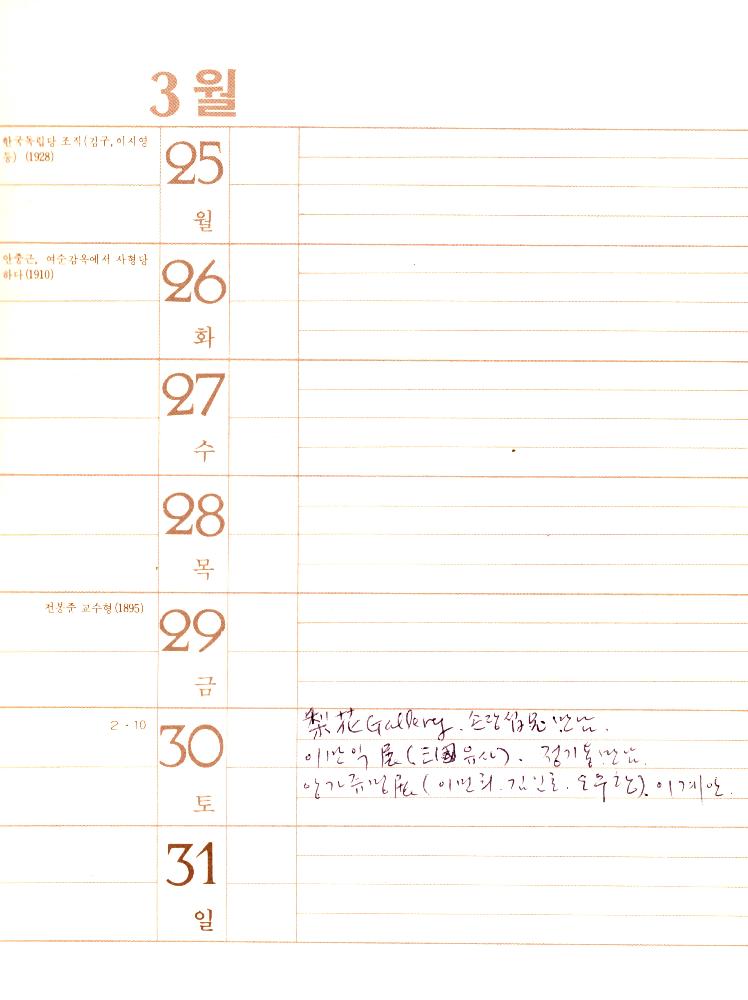 3월
한국독립당 조직(김구, 이시영
등) (1928)
25
월
안중근, 여순감옥에서 사형당
하다(1910)
26
화
27
수
28
목
전봉준 교수형(1895)
29
금
2 - 10
30
토
梨花 Gallery. 만남.
이만익 展(三國유사). 정기용 만남.
앙가쥬망展(이만희. 김인호.
31
일